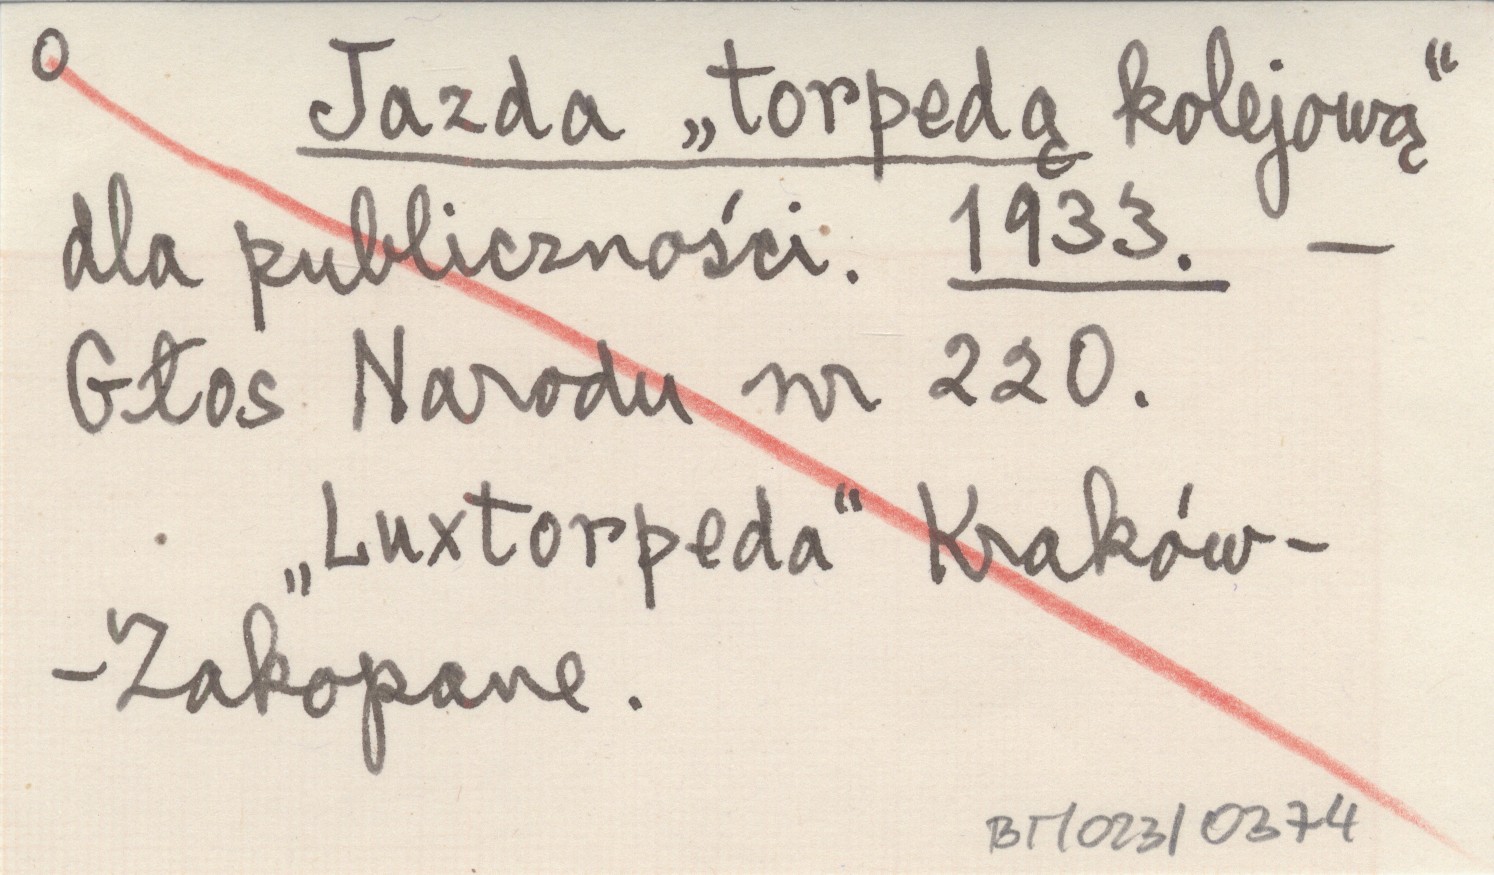 O
Jazda „torpedą kolejową“
dla publiczności. 1933. —
Głos Narodu nr 220.
„Luxtorpeda“ Kraków-
-Zakopane.
BT/023/0374